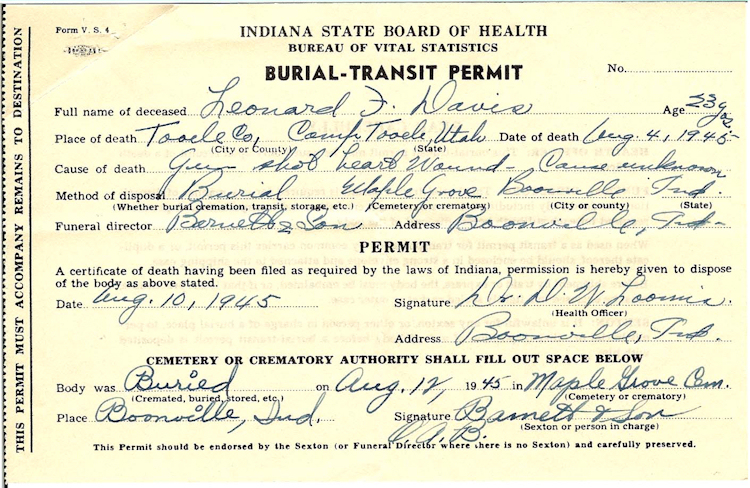 THIS PERMIT MUST ACCOMPANY REMAINS TO DESTINATION
Form V. S. 4
INDIANA STATE BOARD OF HEALTH
BUREAU OF VITAL STATISTICS
BURIAL-TRANSIT PERMIT
No.
Full name of deceased Leonard F. Davis Age 23 yrs.
Place of death Tooele Co, Camp Tooele, Utah Date of death Aug. 4, 1945
(City or County) (State)
Cause of death Gun shot heart wound - Cause unknown
Method of disposal Burial Maple Grove Boonville Ind.
(Whether burial cremation, transit, storage, etc.) (Cemetery or crematory) (City or county) (State)
Funeral director Barnett & Son Address Boonville, Ind.
PERMIT
A certificate of death having been filed as required by the laws of Indiana, permission is hereby given to dispose
of the body as above stated.
Date Aug. 10, 1945 Signature Dr. D. W. Loomis.
(Health Officer)
Address Boonville, Ind.
CEMETERY OR CREMATORY AUTHORITY SHALL FILL OUT SPACE BELOW
Body was Buried on Aug. 12, 1945 in Maple Grove Cem.
(Cremated, buried, stored, etc.) (Cemetery or crematory)
Place Boonville, Ind. Signature Barnett & Son
(Sexton or person in charge)
O. A. B.
This Permit should be endorsed by the Sexton (or Funeral Director where there is no Sexton) and carefully preserved.